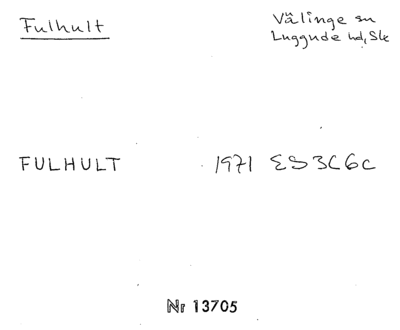 Fulhult
Välinge sn
Luggude hd, Sk
FULHULT 1971 ES3C6c
Nr 13705